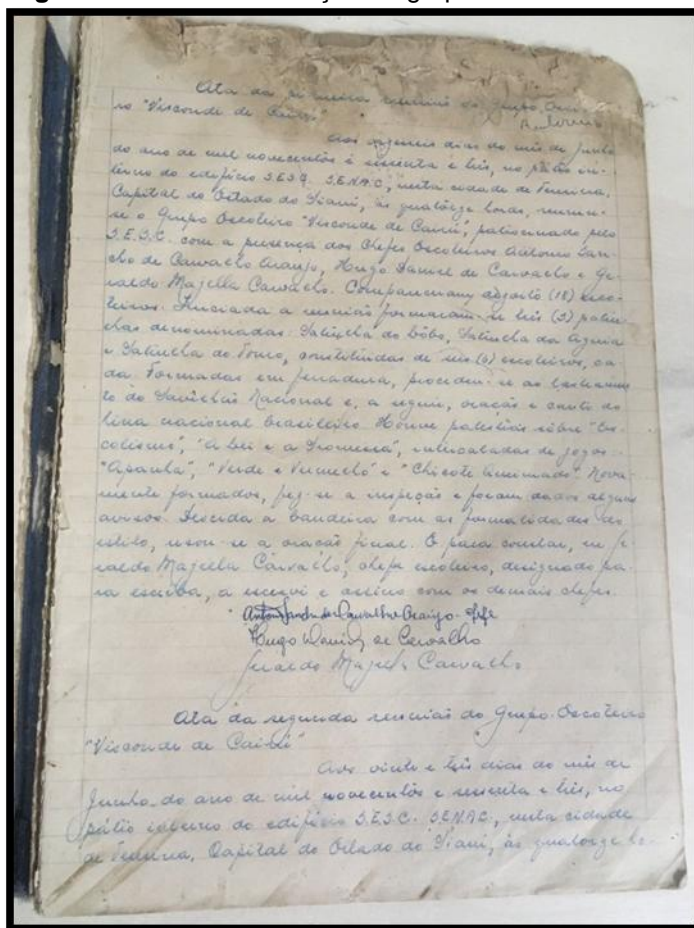 Ata da primeira reunião do Grupo Escotei-
ro "Visconde de Cairú"
Aos dias do mês de junho
do ano de mil novecentos e sessenta e três, no pátio in-
terno do edifício S.E.S.C. S.E.N.A.C., nesta cidade de Teresina,
Capital do Estado do Piauí, às quatorze horas, reuniu-
se o Grupo Escoteiro "Visconde de Cairú", patrocinado pelo
S.E.S.C. com a presença dos Chefes Escoteiros Antonio San-
cho de Carvalho Araujo, Hugo Daniel de Carvalho e Ge-
raldo Majella Carvalho. Compareceram dezoito (18) esco-
teiros. Iniciada a reunião formaram-se três (3) patru-
lhas denominadas: Patrulha do Lôbo, Patrulha da Águia
e Patrulha do Touro, constituidas de seis (6) escoteiros, ca-
da. Formadas em ferradura, procedeu-se ao hasteamen-
to do Pavilhão Nacional e, a seguir, oração e canto do
hino nacional brasileiro. Houve palestras sôbre "Es-
cotismo", "A Lei e a Promessa", intercaladas de jogos:
"Apanha", "Verde e Vermelho" e "Chicote Queimado". Nova-
mente formados, fez-se a inspeção e foram dados alguns
avisos. Descida a bandeira com as formalidades do
estilo, usou-se a oração final. E para constar, eu Ge-
raldo Majella Carvalho, chefe escoteiro, designado pa-
ra escriba, a escrevi e assino com os demais chefes.
Antonio Sancho de Carvalho Araujo - chefe
Hugo Daniel de Carvalho
Geraldo Majella Carvalho
Ata da segunda reunião do Grupo Escoteiro
"Visconde de Cairú"
Aos vinte e três dias do mês de
Junho do ano de mil novecentos e sessenta e três, no
pátio interno do edifício S.E.S.C. S.E.N.A.C., nesta cidade
de Teresina, Capital do Estado do Piauí, às quatorze ho-